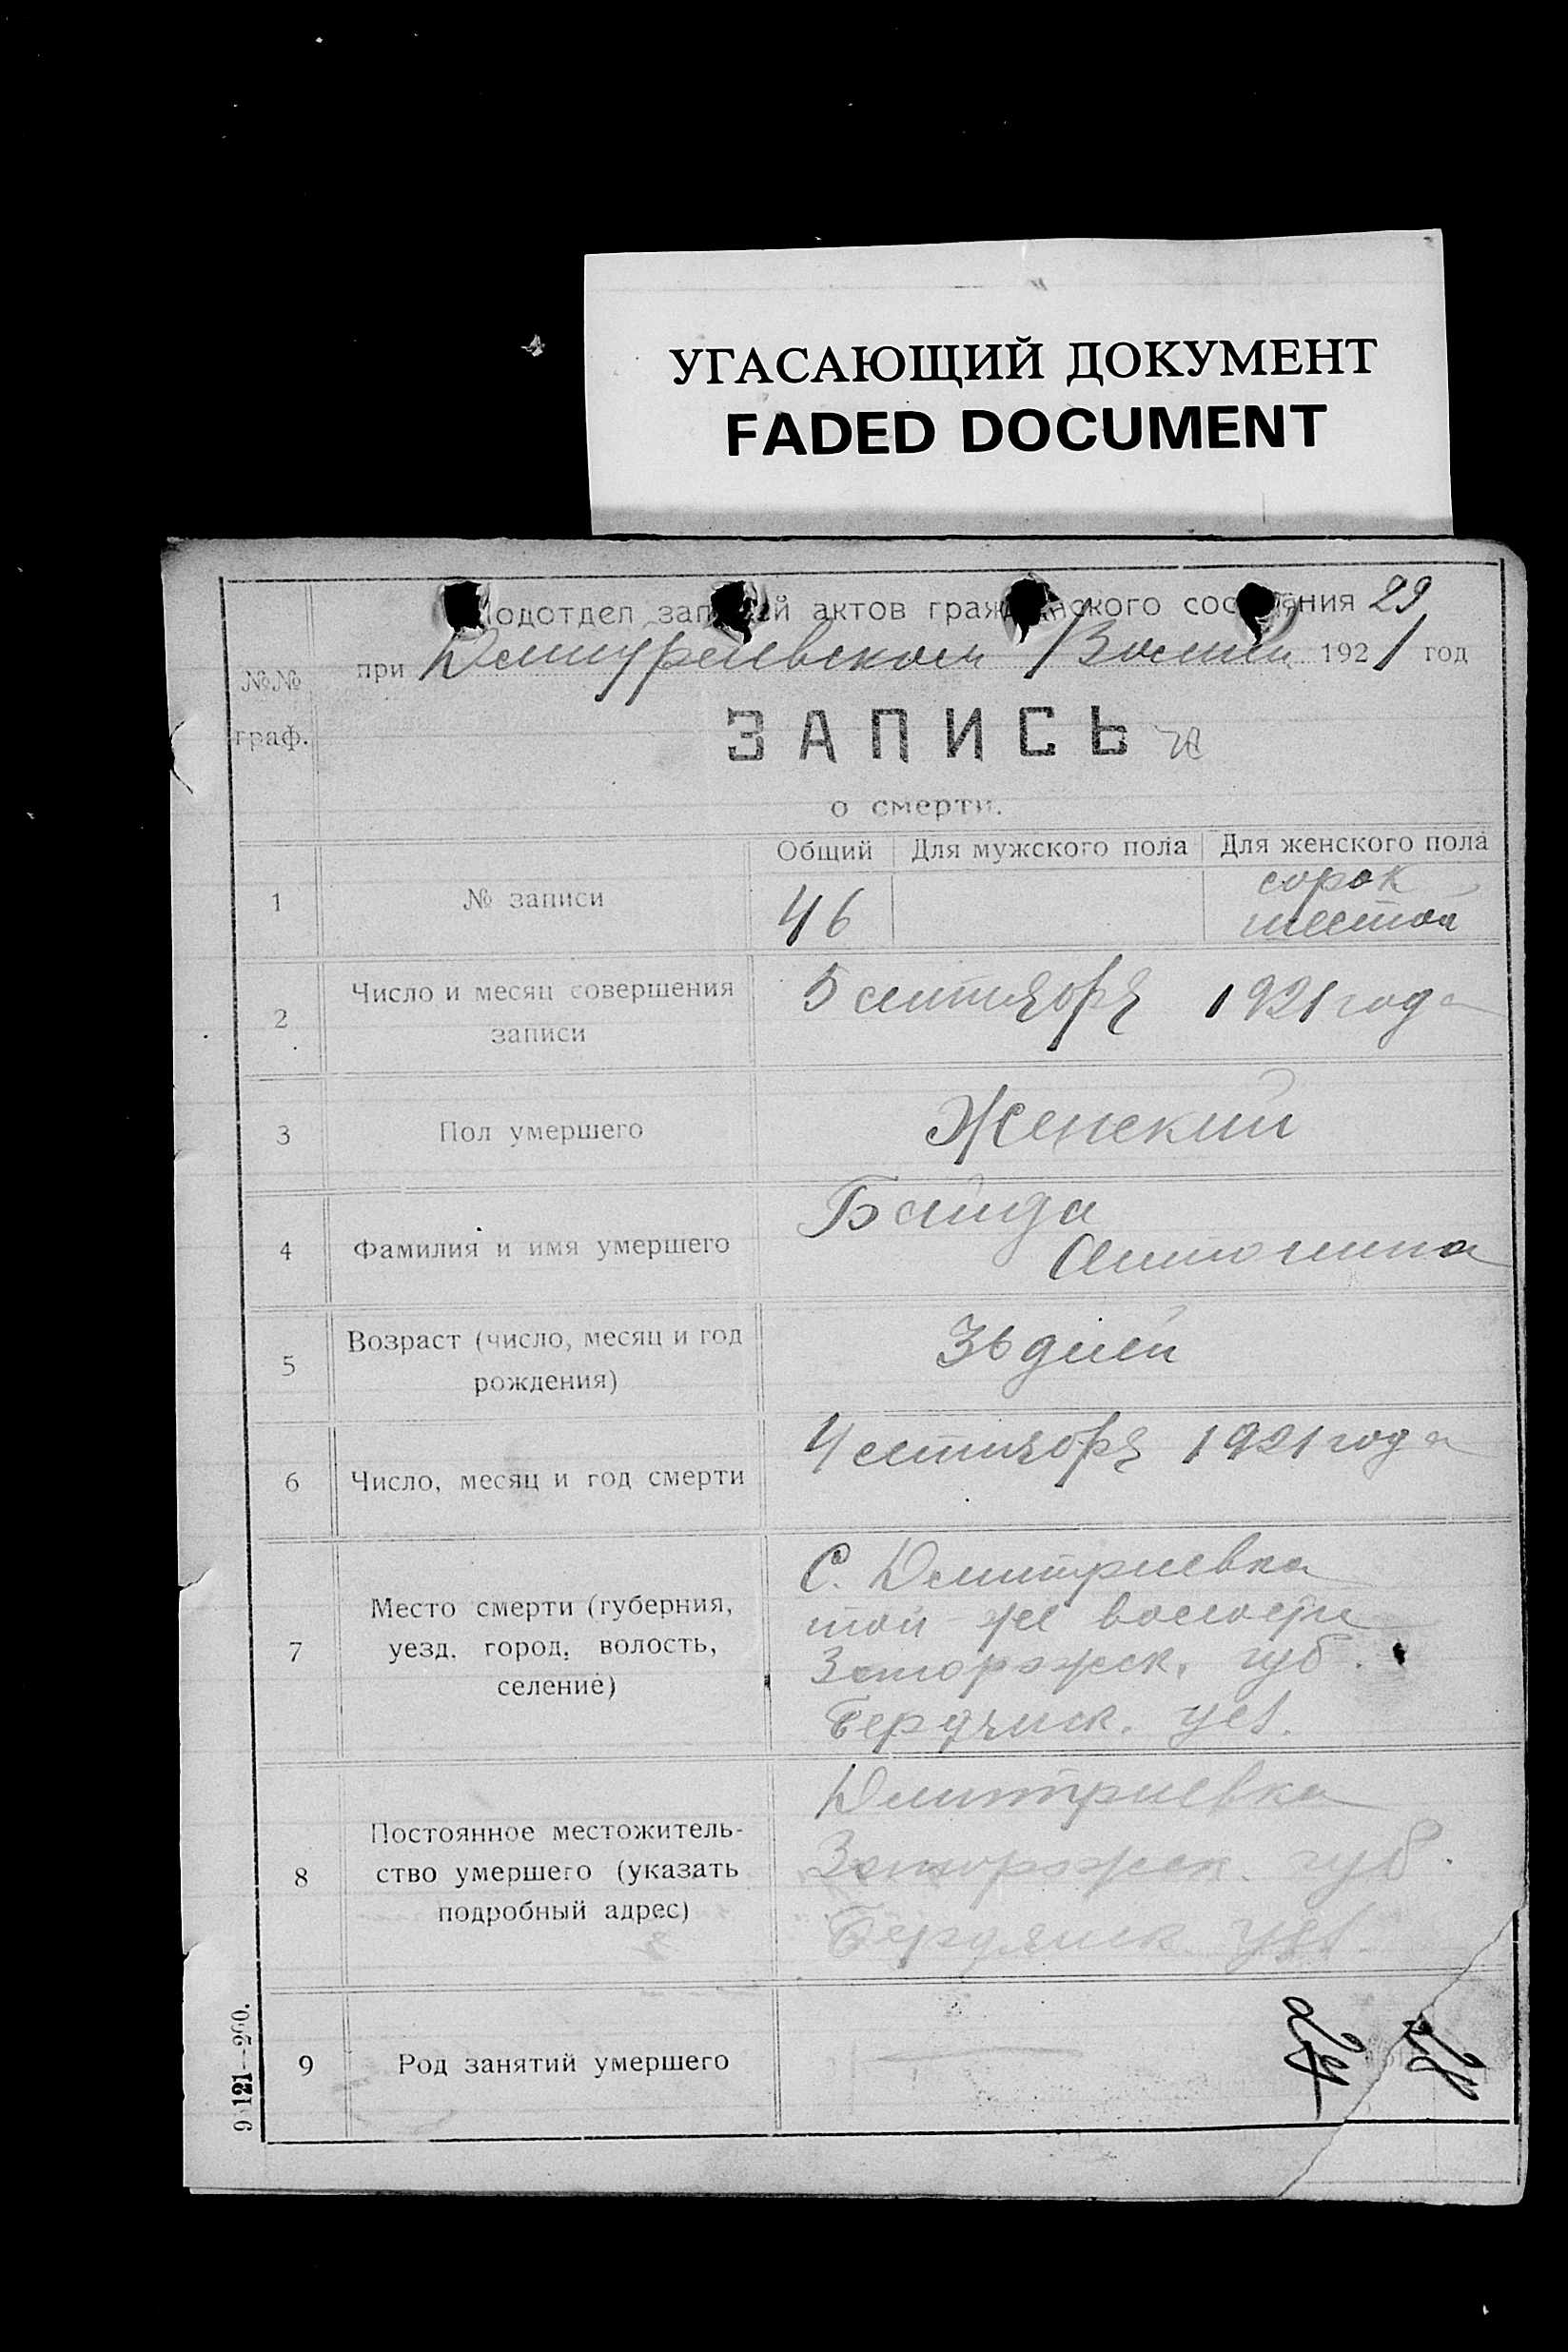 УГАСАЮЩИЙ ДОКУМЕНТ
FADED DOCUMENT
Подотдел записей актов гражданского состояния 29
при 1921 год
№№ граф.
ЗАПИСЬ
о смерти.
Общий Для мужского пола Для женского пола
1 № записи 46 сорок
шестой
2 Число и месяц совершения
записи
5 сентября 1921 года
3 Пол умершего Женский
4 Фамилия и имя умершего Байда
Антонина
5 Возраст (число, месяц и год
рождения)
36 дней
6 Число, месяц и год смерти 4 сентября 1921 года
7 Место смерти (губерния,
уезд, город, волость,
селение)
С. Дмитриевка
той же волости
Запорожск. губ.
Бердянск. уез.
8 Постоянное местожитель-
ство умершего (указать
подробный адрес)
Дмитриевка
Запорожск. губ.
Бердянск. уез.
9 Род занятий умершего
24
28